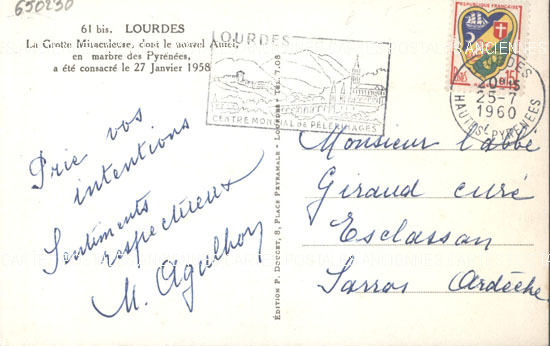 650230
61 bis. LOURDES
La Grotte Miraculeuse, dont le nouvel Autel,
en marbre des Pyrénées,
a été consacré le 27 Janvier 1958
LOURDES
CENTRE MONDIAL DE PÈLERINAGES
REPUBLIQUE FRANÇAISE
15
20H15
25-7
1960
HAUTES PYRENEES
Prie vos
intentions
Sentiments
respectueux
M. Agulhon
ÉDITION P. DOUCET, 8, PLACE PEYRAMALE - LOURDES - TÉL. 7.08
Monsieur l'abbé
Giraud curé
Esclassan
Sarras Ardèche